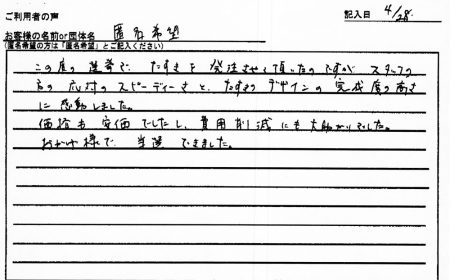 ご利用者の声
記入日 4/28
お客様の名前or団体名 匿名希望
(匿名希望の方は「匿名希望」とご記入ください)
この度の選挙で、たすきを発注させて頂いたのですが、スタッフの
方の応対のスピーディーさと、たすきのデザインの完成度の高さ
に感動しました。
価格も安価でしたし、費用削減にも大助かりでした。
おかげ様で、当選できました。